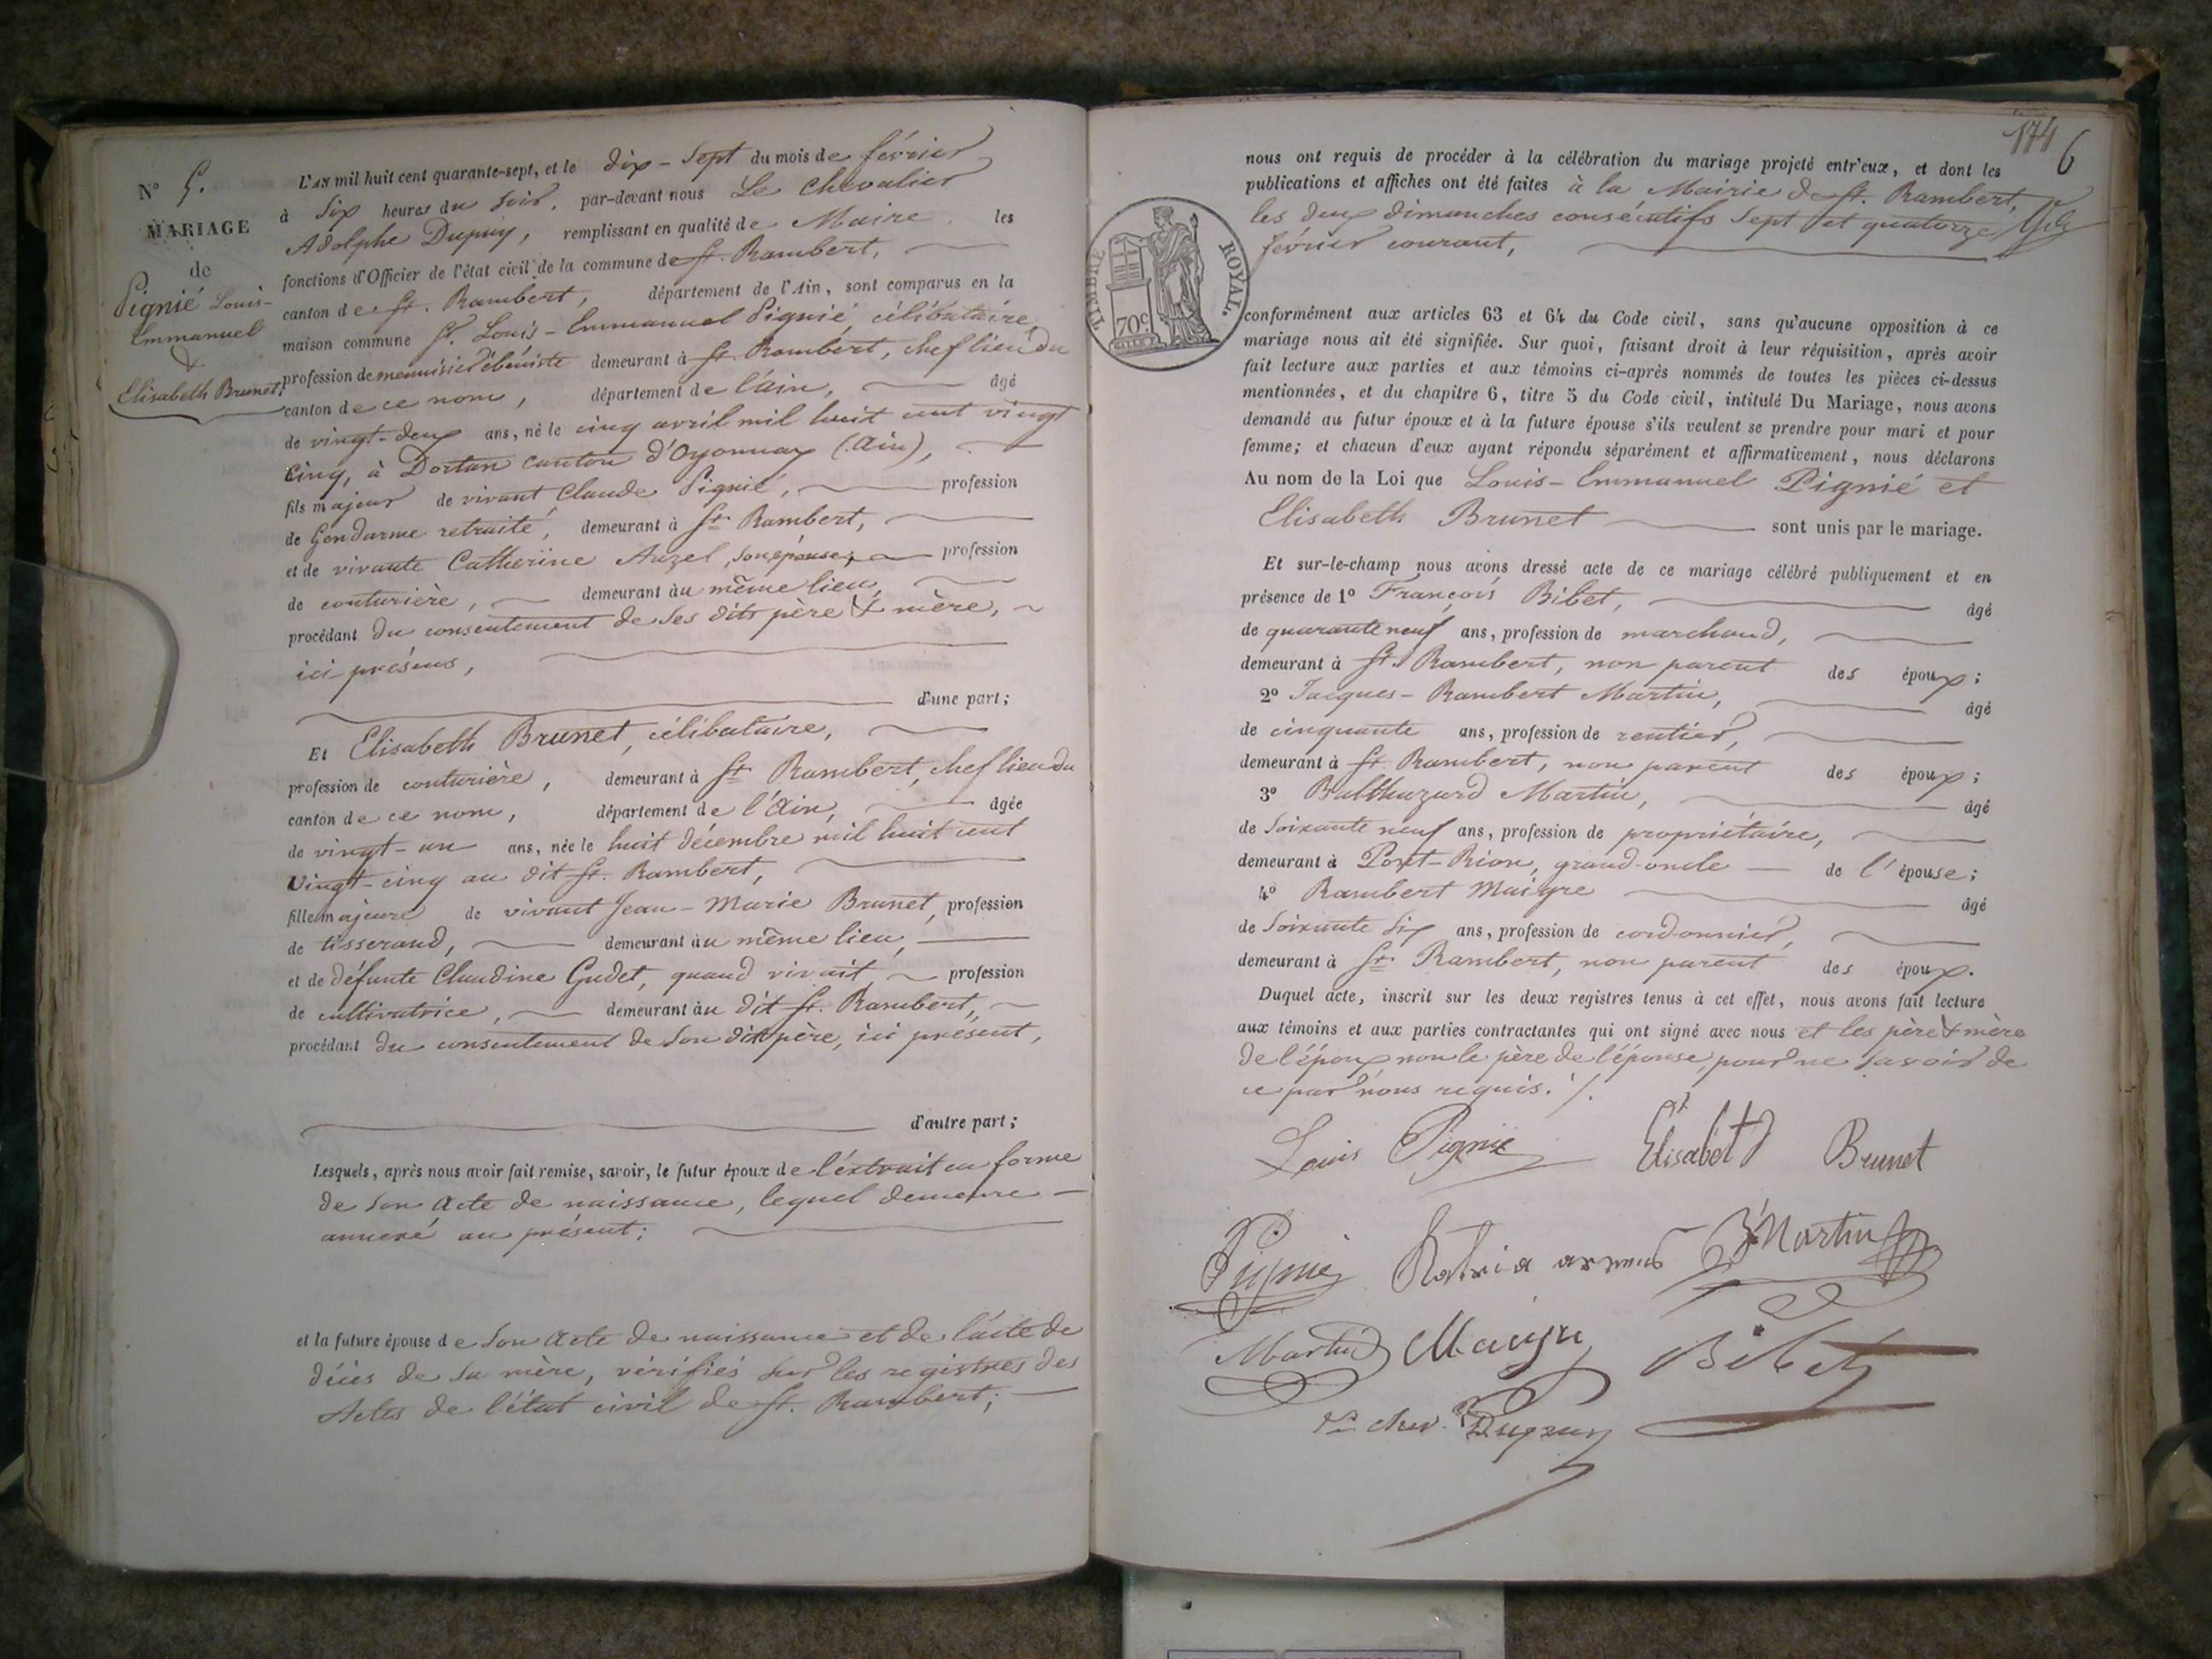 N° 5.
MARIAGE
de
Pignié Louis-
Emmanuel
&
Elisabeth Brunet.
L'AN mil huit cent quarante-sept, et le dix-sept du mois de février
à six heures du soir, par-devant nous Le Chevalier
Adolphe Dupuy, remplissant en qualité de Maire les
fonctions d'Officier de l'état civil de la commune de St. Rambert,
canton de St. Rambert, département de l'Ain, sont comparus en la
maison commune Sr. Louis-Emmanuel Pignié, célibataire,
profession de menuisier ébéniste demeurant à St. Rambert, chef lieu du
canton de ce nom, département de l'ain, âgé
de vingt-deux ans, né le cinq avril mil huit cent vingt
cinq, à Dortan canton d'Oyonnax (Ain),
fils majeur de vivant Claude Pignié, profession
de Gendarme retraité, demeurant à St. Rambert,
et de vivante Catherine Auzel, son épouse, profession
de couturière, demeurant au même lieu,
procédant du consentement de ses dits père & mère,
ici présens,
d'une part;
Et Elisabeth Brunet, célibataire,
profession de couturière, demeurant à St. Rambert, chef lieu du
canton de ce nom, département de l'Ain, âgée
de vingt-un ans, née le huit décembre mil huit cent
vingt-cinq au dit St. Rambert,
fille majeure de vivant Jean-Marie Brunet, profession
de tisserand, demeurant au même lieu,
et de défunte Claudine Gudet, quand vivait profession
de cultivatrice, demeurant au dit St. Rambert,
procédant du consentement de son dit père, ici présent,
d'autre part;
Lesquels, après nous avoir fait remise, savoir, le futur époux de l'extrait en forme
de son acte de naissance, lequel demeure
annexé au présent;
et la future épouse de son acte de naissance et de l'acte de
décès de sa mère, vérifiés sur les registres des
Actes de l'état civil de St. Rambert;
174 6
TIMBRE ROYAL.
70c.
nous ont requis de procéder à la célébration du mariage projeté entr'eux, et dont les
publications et affiches ont été faites à la Mairie de St. Rambert,
les deux dimanches consécutifs sept et quatorze
février courant,
conformément aux articles 63 et 64 du Code civil, sans qu'aucune opposition à ce
mariage nous ait été signifiée. Sur quoi, faisant droit à leur réquisition, après avoir
fait lecture aux parties et aux témoins ci-après nommés de toutes les pièces ci-dessus
mentionnées, et du chapitre 6, titre 5 du Code civil, intitulé Du Mariage, nous avons
demandé au futur époux et à la future épouse s'ils veulent se prendre pour mari et pour
femme; et chacun d'eux ayant répondu séparément et affirmativement, nous déclarons
Au nom de la Loi que Louis-Emmanuel Pignié et
Elisabeth Brunet sont unis par le mariage.
Et sur-le-champ nous avons dressé acte de ce mariage célébré publiquement et en
présence de 1° François Bibet, âgé
de quarante neuf ans, profession de marchand,
demeurant à St. Rambert, non parent des époux;
2° Jacques-Rambert Martin, âgé
de cinquante ans, profession de rentier,
demeurant à St. Rambert, non parent des époux;
3° Balthazard Martin, âgé
de soixante neuf ans, profession de propriétaire,
demeurant à Pont-Rion, grand-oncle de l'épouse;
4° Rambert Maigre âgé
de soixante six ans, profession de cordonnier,
demeurant à St. Rambert, non parent des époux.
Duquel acte, inscrit sur les deux registres tenus à cet effet, nous avons fait lecture
aux témoins et aux parties contractantes qui ont signé avec nous et les père & mère
de l'époux, non le père de l'épouse, pour ne savoir de
ce par nous requis. /.
Louis Pignié Elisabeth Brunet
Pignié B Martin
Martin Maigre Bibet
chev. Dupuy